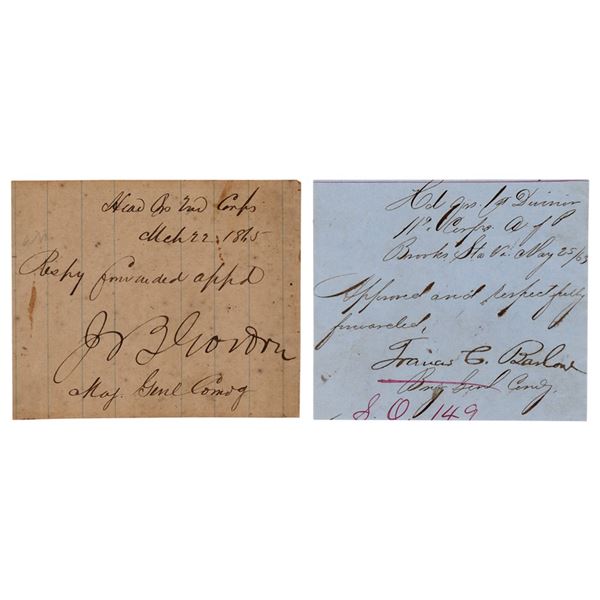 Head Qrs 2nd Corps
Mch 22 1865
Respy forwarded appd
J B Gordon
Maj. Genl Comdg
Hd Qrs. 1st Division
11th Corps A of P
Brooks Sta Va. May 25/63
Approved and respectfully
forwarded,
Francis C. Barlow
Brig Genl Comdg.
S. O. 149